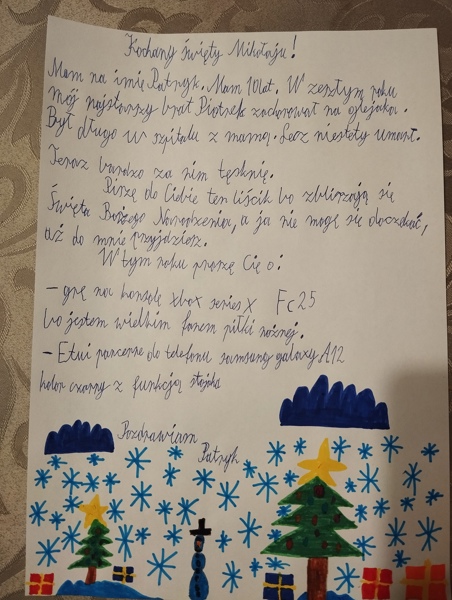 Kochany Święty Mikołaju!
Mam na imię Patryk. Mam 10 lat. W zeszłym roku
mój najstarszy brat Piotrek zachorował na glejaka.
Był długo w szpitalu z mamą. Lecz niestety umarł.
Teraz bardzo za nim tęsknię.
Piszę do Ciebie ten liścik bo zbliżają się
Święta Bożego Narodzenia, a ja nie mogę się doczekać,
aż do mnie przyjdziesz.
W tym roku proszę Cię o:
- grę na konsolę xbox series X Fc25
bo jestem wielkim fanem piłki nożnej.
- Etui pancerne do telefonu samsung galaxy A12
kolor czarny z funkcją stojaka
Pozdrawiam
Patryk